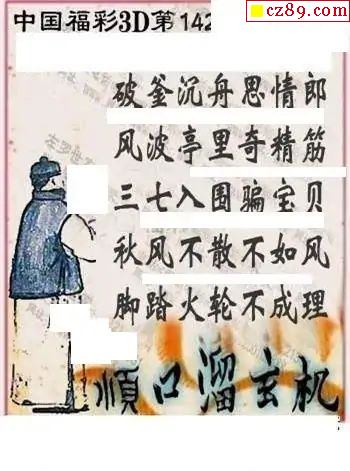 cz89.com
中国福彩3D第142
破釜沉舟思情郎
风波亭里奇精筋
三七入围骗宝贝
秋风不散不如风
脚踏火轮不成理
顺口溜玄机